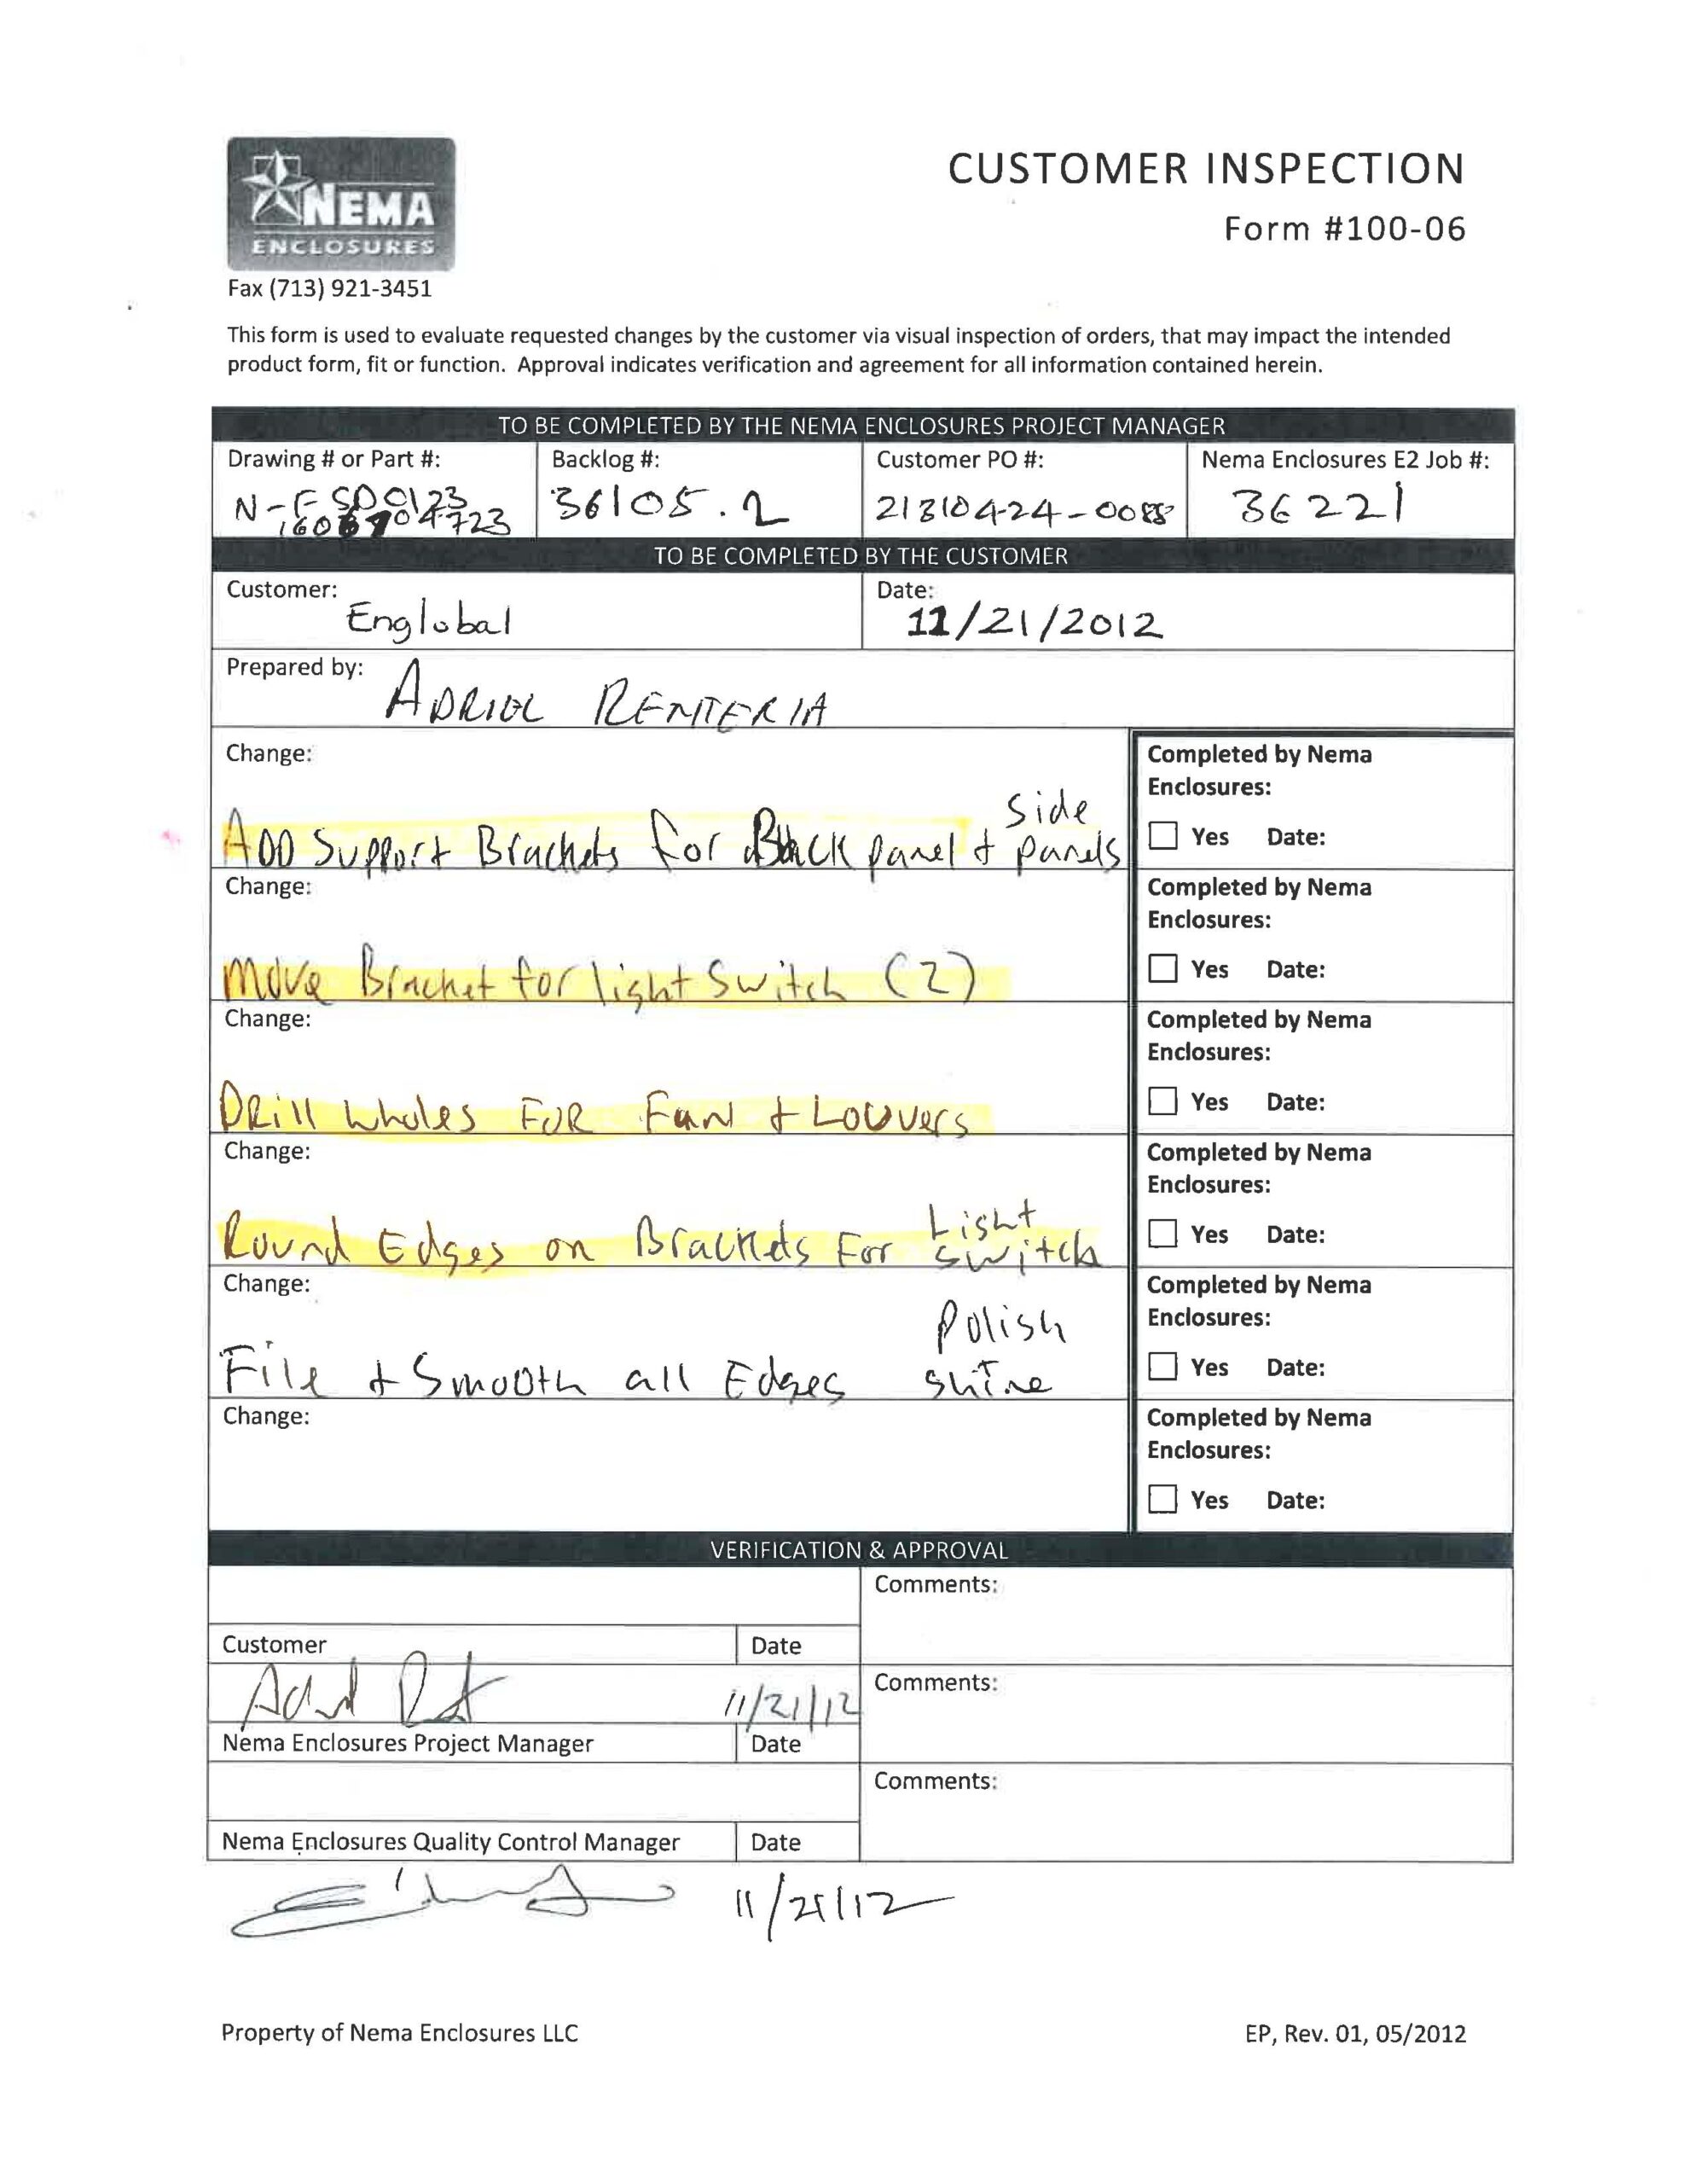 NEMA
ENCLOSURES
CUSTOMER INSPECTION
Form #100-06
Fax (713) 921-3451
This form is used to evaluate requested changes by the customer via visual inspection of orders, that may impact the intended
product form, fit or function. Approval indicates verification and agreement for all information contained herein.
TO BE COMPLETED BY THE NEMA ENCLOSURES PROJECT MANAGER
Drawing # or Part #: Backlog #: Customer PO #: Nema Enclosures E2 Job #:
36105.2 21310424-0088 36221
TO BE COMPLETED BY THE CUSTOMER
Customer: Englobal
Date: 11/21/2012
Prepared by: ADRIEL RENTERIA
Change:
ADD Support Brackets for Back panel + side panels
Completed by Nema
Enclosures:
Yes Date:
Change:
Move Bracket for light Switch (2)
Completed by Nema
Enclosures:
Yes Date:
Change:
DRill Wholes FOR Fan + Louvers
Completed by Nema
Enclosures:
Yes Date:
Change:
Round Edges on Brackets For Light Switch
Completed by Nema
Enclosures:
Yes Date:
Change:
File + Smooth all Edges Polish Shine
Completed by Nema
Enclosures:
Yes Date:
Change:
Completed by Nema
Enclosures:
Yes Date:
VERIFICATION & APPROVAL
Comments:
Customer Date
11/21/12
Comments:
Nema Enclosures Project Manager Date
Comments:
Nema Enclosures Quality Control Manager Date
11/21/12
Property of Nema Enclosures LLC
EP, Rev. 01, 05/2012